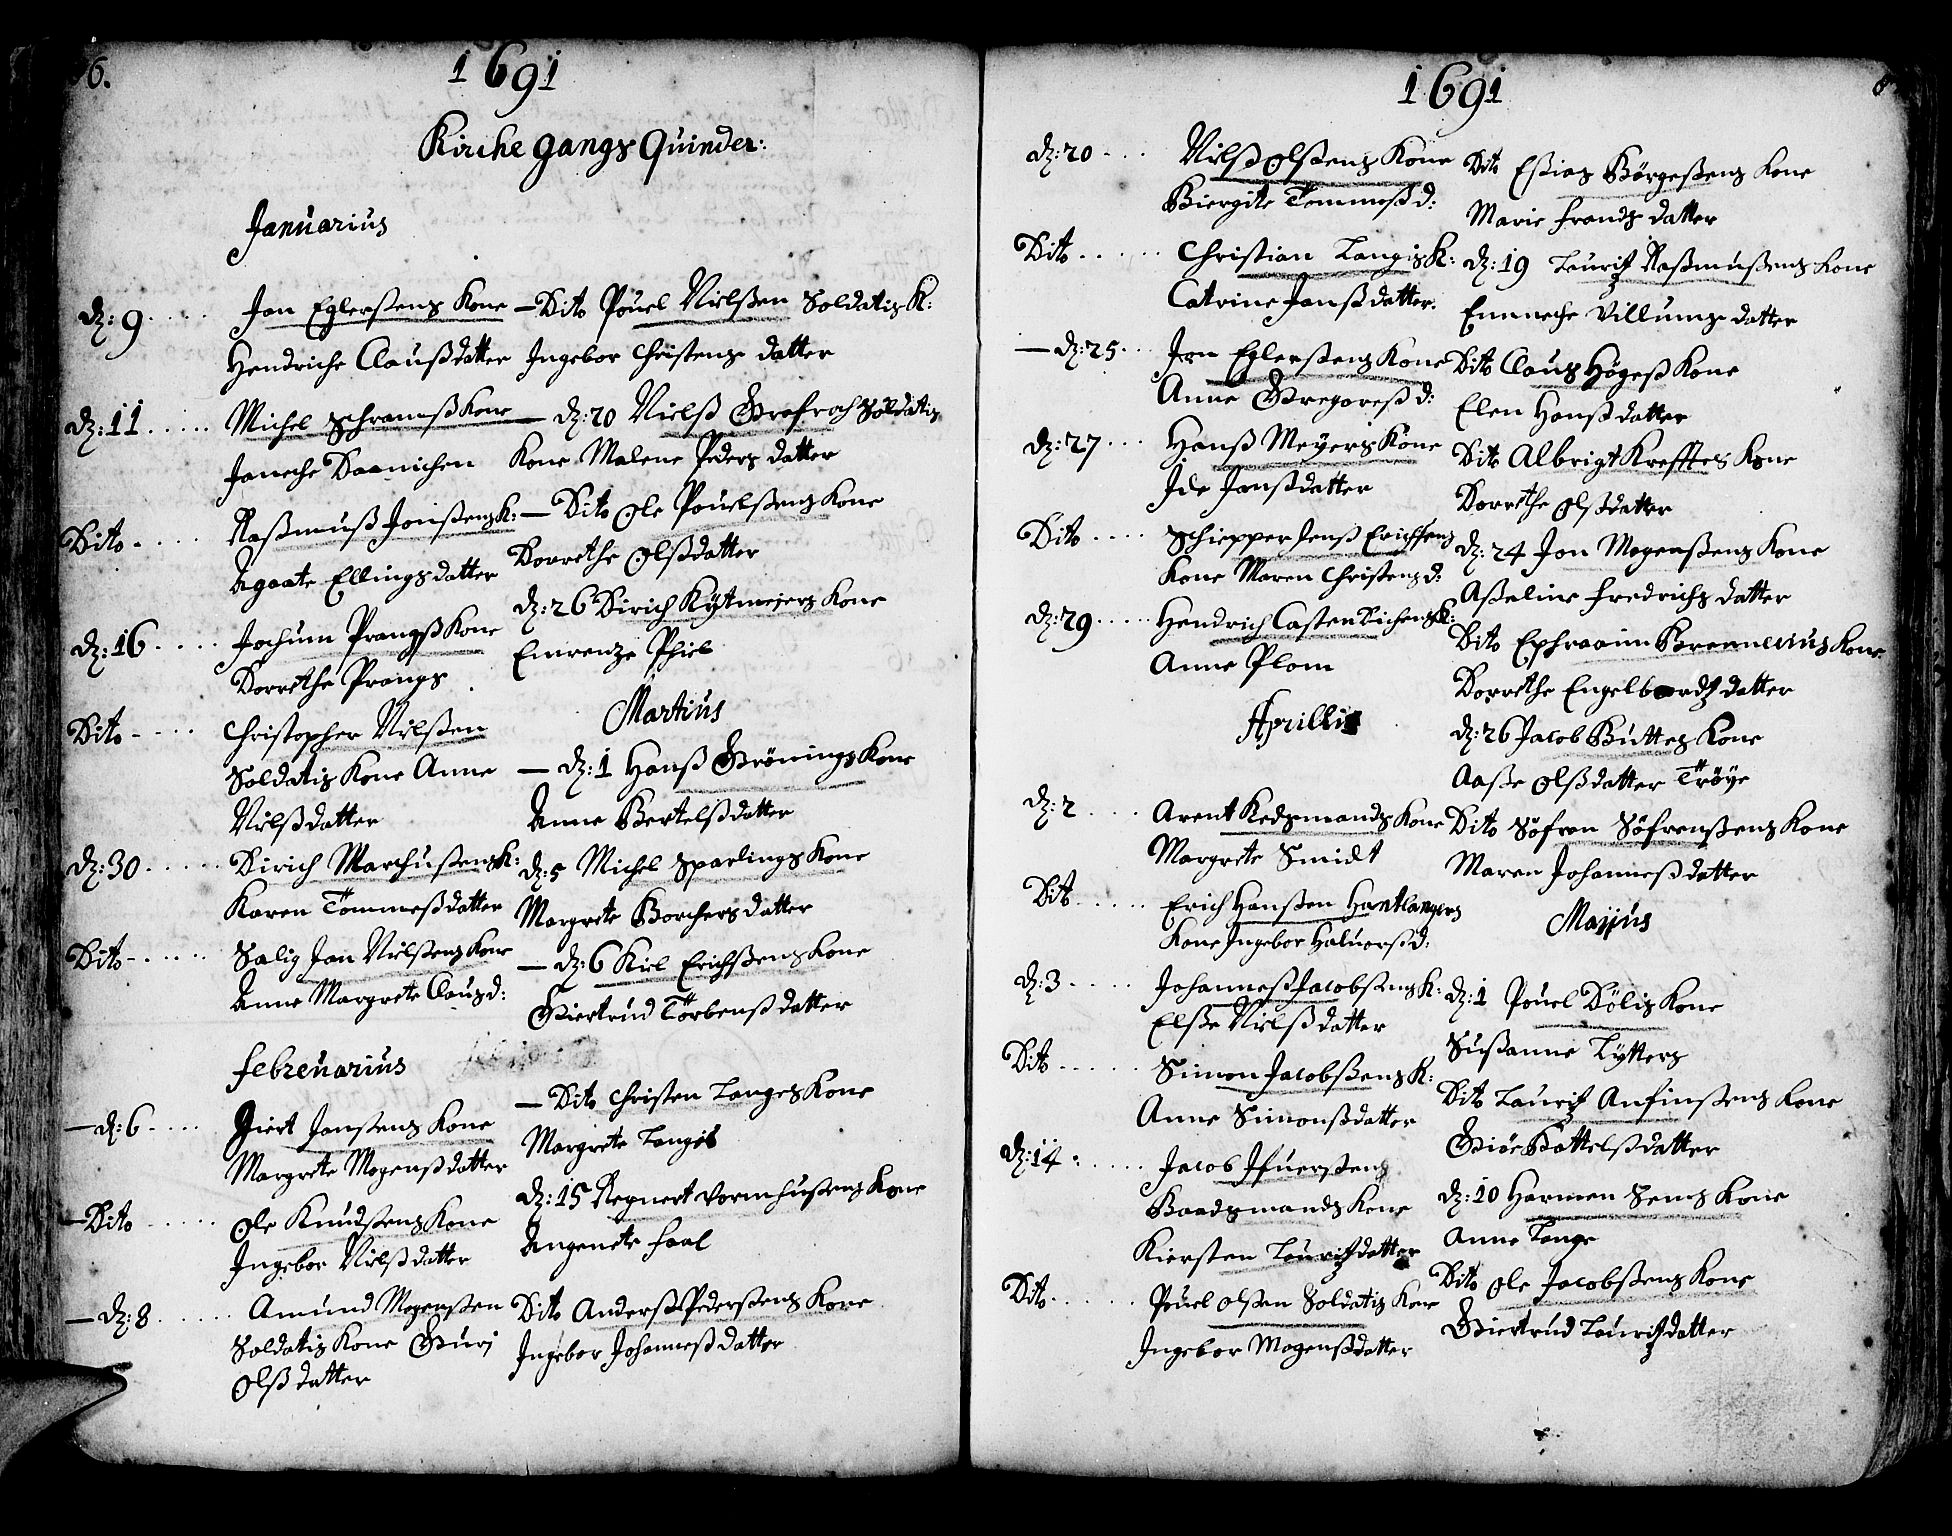 6.
1691
Kirche gangs Quinder:
Januarius
dz: 9 Jan Eglerßens Kone
Hendriche Clausdatter
dz: 11 Michel Schramß Kone
Janeche Daanichen
Dito Raßmuß Jonßens K:
Agaate Ellingsdatter
dz: 16 Jochum Prangß Kone
Dorrethe Prangs
Dito Christopher Nilßen
Soldatis Kone Anne
Nilßdatter
dz: 30 Dirich Marchußens K:
Karen Tommeßdatter
Dito Salig Jan Nilßens Kone
Anne Margrete Claus d:
Febreuarius
dz: 6 Giert Janßens Kone
Margrete Mogensdatter
Dito Ole Knudßens Kone
Ingebor Nilßdatter
dz: 8 Amund Mogenßen
Soldatis Kone Guri
Olßdatter
Dito Pouel Nielßen Soldatis K:
Ingebor Christens datter
dz: 20 Nielß Grefroch Soldatis
Kone Malene Peders datter
Dito Ole Pouelßens Kone
Dorrethe Olßdatter
dz: 26 Dirich Kytmejers Kone
Emrentze Phiel
Martius
dz: 1 Hanß Grönings Kone
Anne Bertelßdatter
dz: 5 Michel Sparlings Kone
Margrete Borchers datter
dz: 6 Kiel Erichßens Kone
Giertrud Törbenß datter
Dito Christen Langes Kone
Margrete Langis
dz: 15 Regnert Vormhußens Kone
Angenete Faal
Dito Anderß Pederßens Kone
Ingebor Johanneß datter
1691
dz: 20 Nilß Olßens Kone
Biergite Tommeß d:
Dito Christian Langis K:
Catrine Janßdatter.
dz: 25 Jan Eglerßens Kone
Anne Gregoreß d:
dz: 27 Hanß Meyers Kone
Ide Janßdatter
Dito Schiepper Jenß Erichßens
Kone Maren Christens d:
dz: 29 Hendrich Casten Tichens K:
Anne Plom
Aprillis
dz: 2 Arent Kedsmands Kone
Margrete Smidt
Dito Erich Hanßen Hantlangers
Kone Ingebor Haluorß d:
dz: 3 Johanneß Jacobßens K:
Elße Nielßdatter
Dito Simon Jacobßens K:
Anne Simonßdatter
dz: 14 Jacob Ifuerßens
Baadsmands Kone
Kiersten Lauritzdatter
Dito Pouel Olßen Soldatis Kone
Ingebor Mogenßdatter
Dito Eßias Börgeßens Kone
Marie Frands datter
dz: 19 Lauritz Raßmußens Kone
Emmeche Villums datter
Dito Claus Högeß Kone
Elen Hanßdatter
Dito Albrigt Krefftes Kone
Dorrethe Olßdatter
dz: 24 Jon Mogenßens Kone
Aßeline Fredrichs datter
Dito Ephraaim Kone
Dorrethe Engelbardtz datter
dz: 26 Jacob Buttes Kone
Aaße Olßdatter Tröye
Dito Söfren Söfrenßens Kone
Maren Johanneßdatter
Majus
dz: 1 Pouel Dölis Kone
Sußanne Lytters
Dito Lauritz Anfinßens Kone
Giöe Battelßdatter
dz: 10 Harmen Sems Kone
Anne Lange
Dito Ole Jacobßens Kone
Giertrud Lauritzdatter